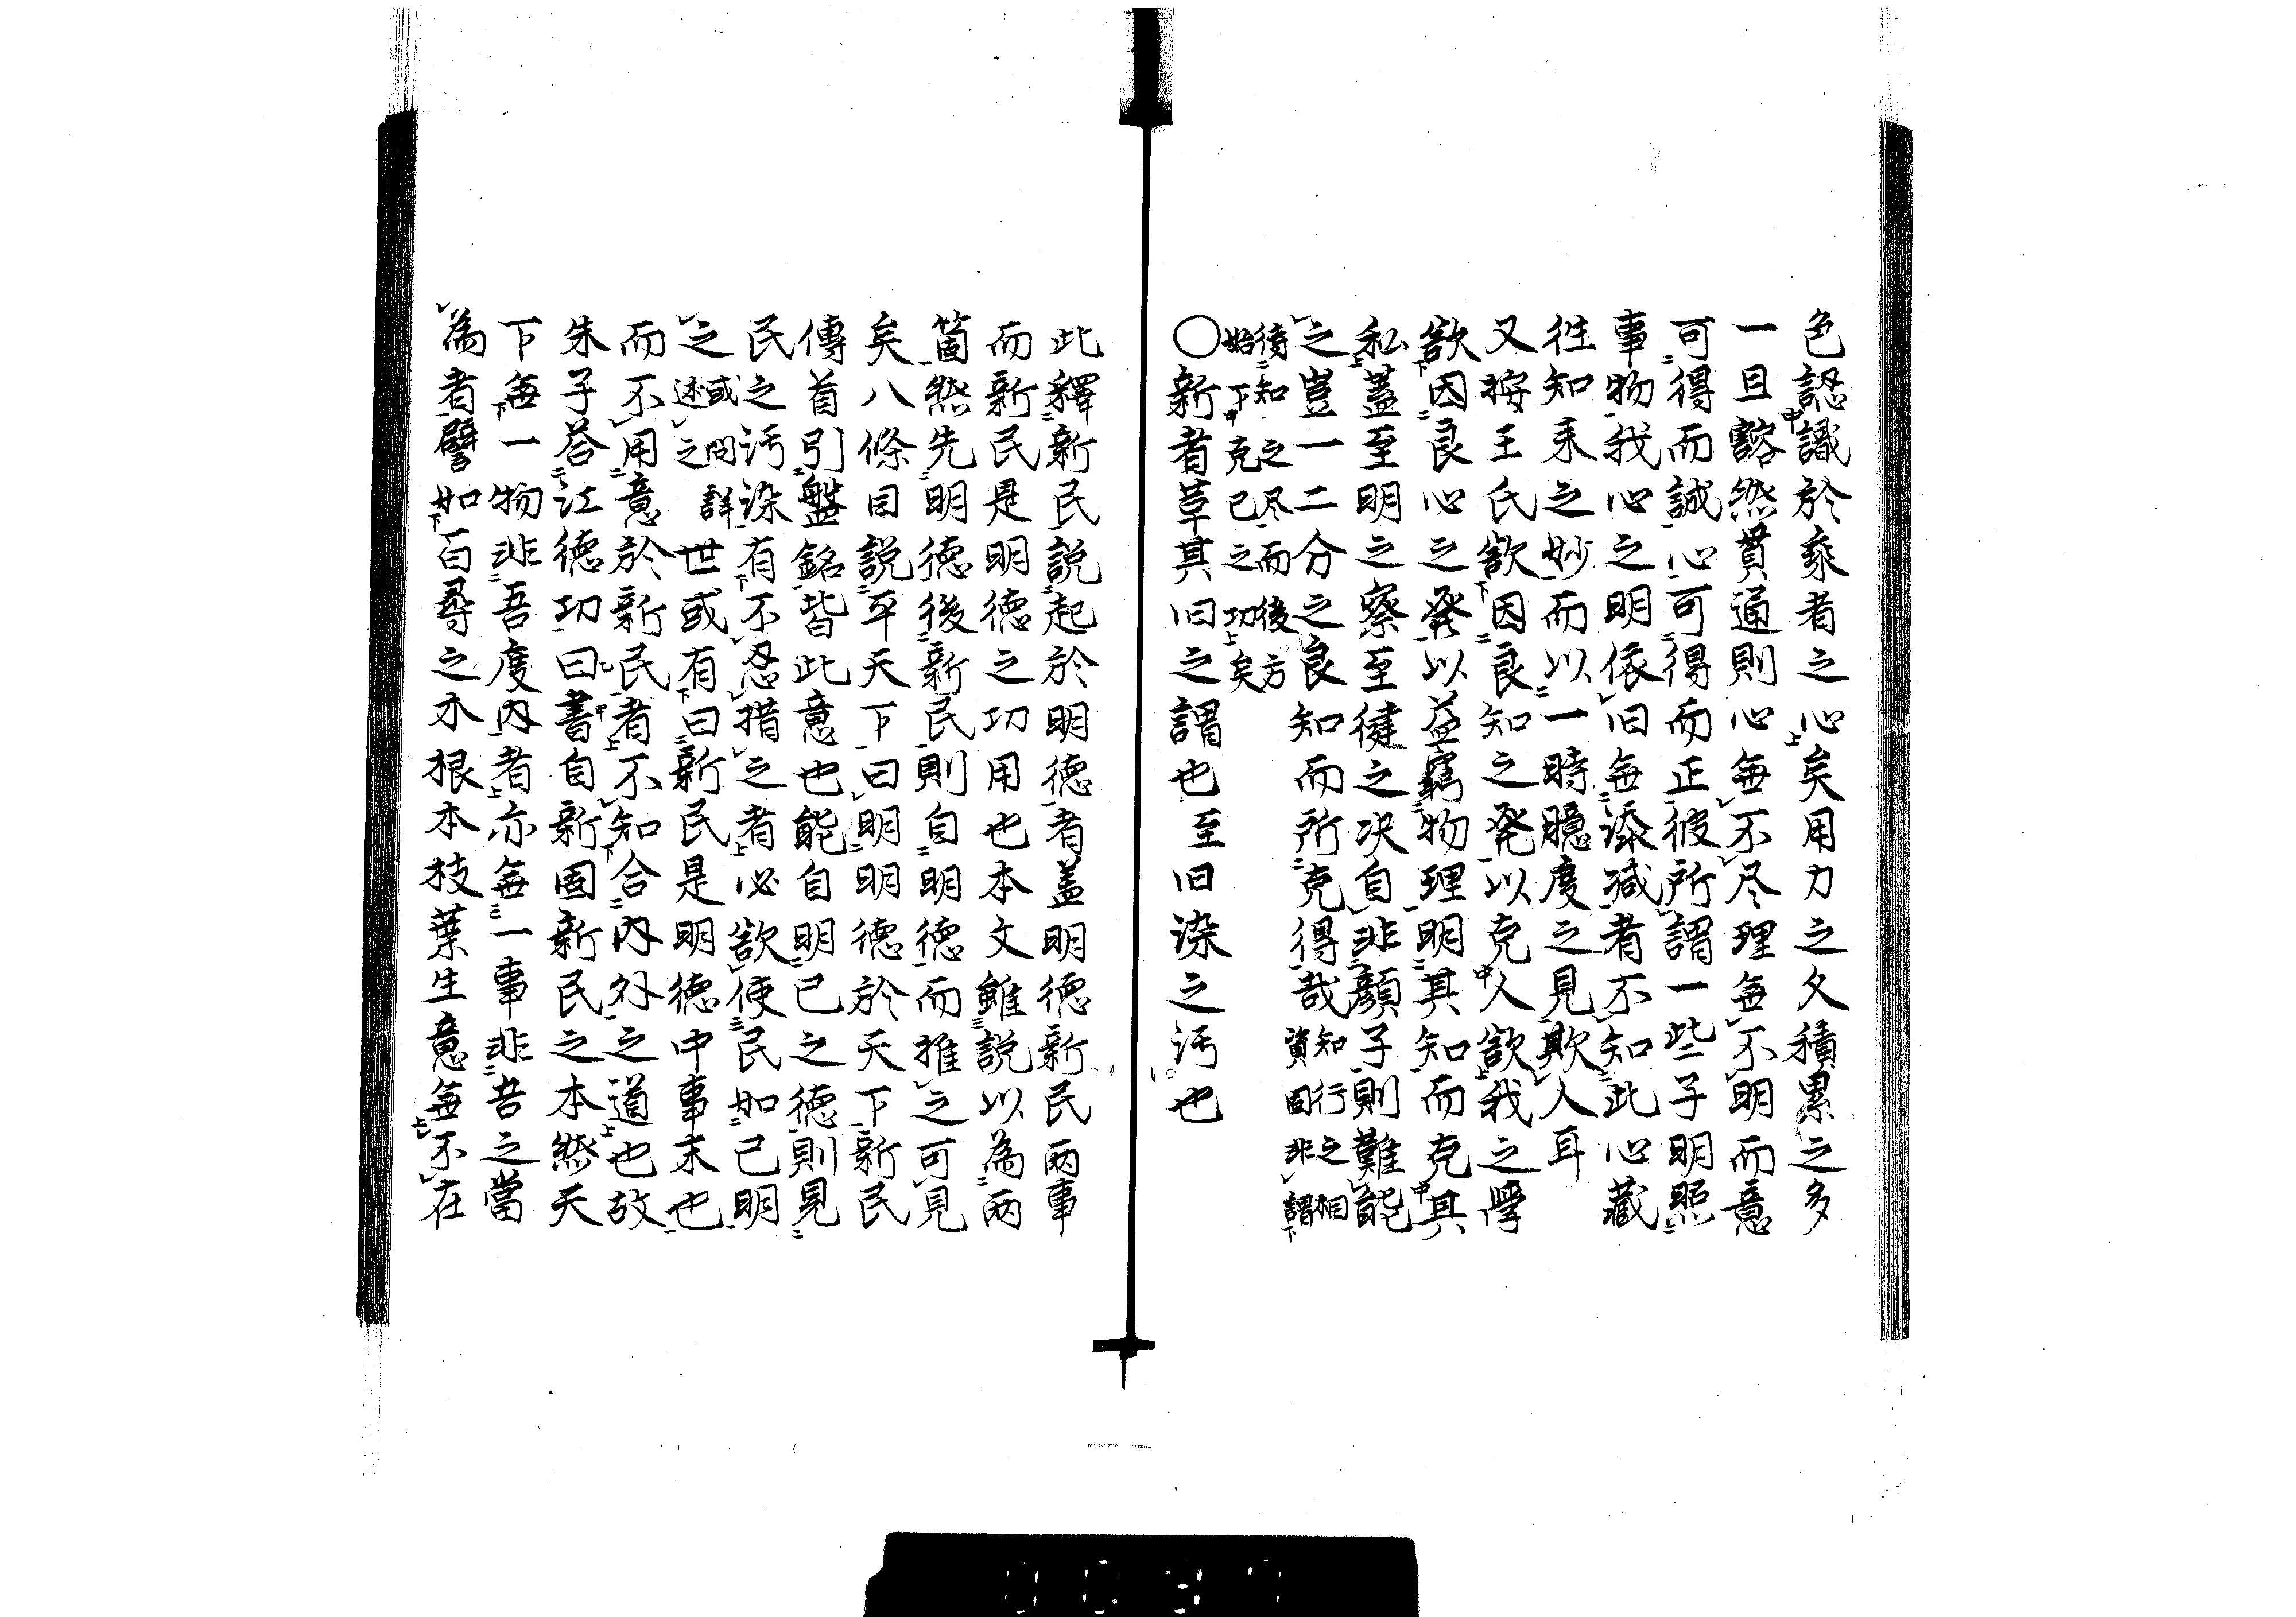 色認識於乘者之心矣用力之久積累之多
一旦豁然貫通則心每不尽理每不明而意
可得而誠心可得而正彼所謂一些子明照
事物我心之明依旧每添减者不知此心蔵
徃知来之妙而以一時臆度之見欺人耳
又按王氏欲因良知之発以克人欲我之学
欲因良心之発以益窮物理明其知而克其
私蓋至明之察至健之决自非顔子則難能
之豈一二分之良知而所克得哉知行之相
資固非謂
待知之尽而後方
始下克已之功矣
〇新者革其旧之謂也至旧染之汚也
此釋新民説起於明徳者蓋明徳新民兩事
而新民是明徳之功用也本文雖説以為兩
箇然先明徳後新民則自明徳而推之可見
矣八條目説平天下曰明明徳於天下新民
傳首引盤銘皆此意也能自明己之徳則見
民之汚染有不忍措之者必欲使民如己明
之或問詳
述之世或有曰新民是明徳中事末也
而不用意於新民者不知合内外之道也故
朱子荅江徳功曰書自新固新民之本然天
下毎一物非吾度内者亦毎一事非吾之當
為者譬如百尋之木根本枝葉生意毎不在